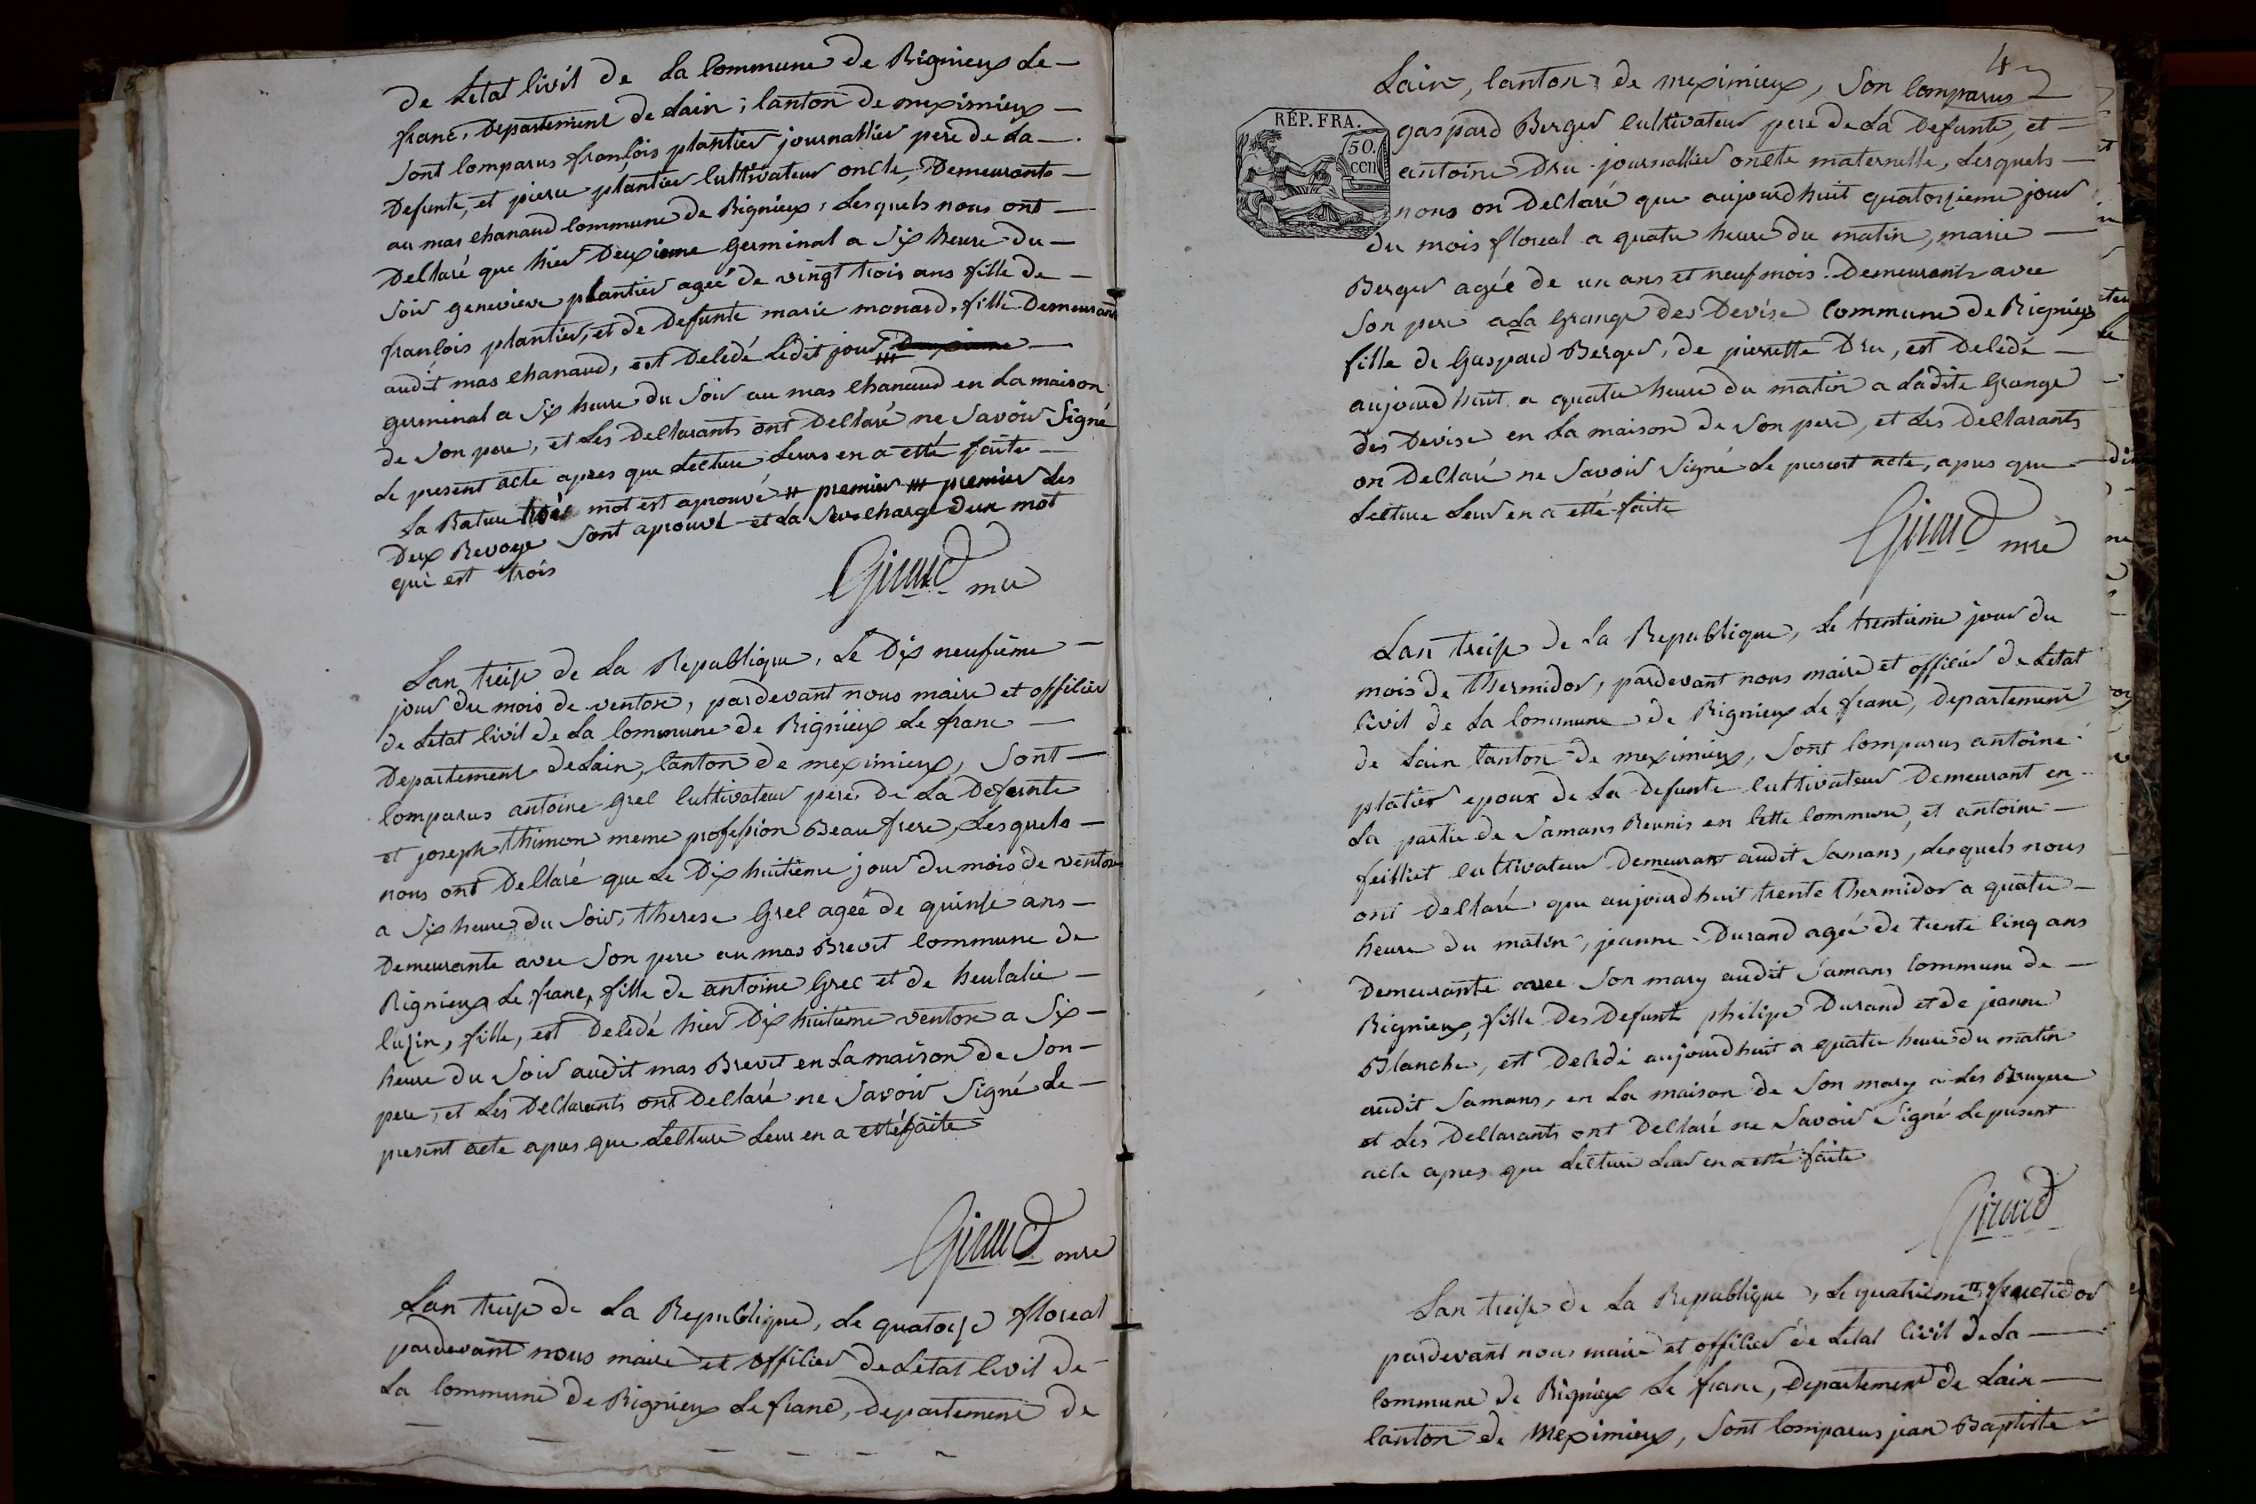 de Letat Civil de La Commune de Rignieux Le
franc, Departement de Lain, Canton de meximieux
Sont Comparus françois plantier journallier pere de La
Defunte, et pierre plantier Cultivateur oncle, Demeurants
au mas Chanaud Commune de Rignieux, Lesquels nous ont
Declaré que hier Deuxieme Germinal a Six heure du
Soir genevieve plantier ageé de vingt trois ans fille de
françois plantier, et de Defunte marie monard, fille Demeurant
audit mas Chanaud, est Decedé Ledit jour
germinal a Six heure du Soir au mas Chanaud en La maison
de Son pere, et Les Declarants ont Declaré ne Savoir Signé
Le present acte apres que Lecture Leurs en a etté faite
La Rature trois mot est aprouvé # premier ## premier Les
Deux Revoye Sont aprouvé et La Surcharge d'un mot
qui est trois
Giraud mre
Lan treize de La Republique, Le Dix neufieme
jour du mois de ventose, pardevant nous maire et officier
de Letat Civil de La Commune de Rignieux Le franc
Departement de Lain, Canton de meximieux, Sont
Comparus antoine Grel Cultivateur pere De La Defunte
et joseph thimon meme profession Beau frere, Lesquels
nous ont Declaré que Le Dix huitieme jour du mois de ventose
a Six heure du Soir, therese Grel ageé de quinze ans
Demeurante avec Son pere au mas Brevet Commune de
Rignieux Le franc, fille de antoine Grel et de heulalie
Cuzin, fille, est Decedé hier Dix huitieme ventose a Six
heure du Soir audit mas Brevet en La maison de Son
pere, et Les Declarants ont Declaré ne Savoir Signé Le
present acte apres que Lecture Leur en a etté faite
Giraud mre
Lan treize de La Republique, Le quatorze floreal
pardevant nous maire et officier de Letat Civil de
La Commune de Rignieux Le franc, departement de
4
RÉP. FRA.
50.
cen
Lain, Canton de meximieux, Son Comparus
gaspard Berger Cultivateur pere de La Defunte, et
antoine Dru journallier oncle maternelle, Lesquels
nous on Declaré que aujourdhuit quatorzieme jour
du mois floreal a quatre heure du matin, marie
Berger agéé de un ans et neuf mois Demeurante avec
Son pere a La Grange des Devise Commune de Rignieux
fille de Gaspard Berger, de pierrette Dru, est Decedé
aujourdhuit a quatre heure du matin a Ladite Grange
des Devise en La maison de Son pere, et Les Declarants
on Declaré ne Savoir Signé Le present acte, apres que
Lecture Leur en a etté faite
Giraud mre
Lan treize de La Republique, Le trentieme jour du
mois de thermidor, pardevant nous maire et officier de Letat
Civil de La Commune de Rignieux Le franc, Departement
de Lain Canton de meximieux, Sont Comparus antoine
platier epoux de La Defunte Cultivateur Demeurant en
La partie de Samans Reunis en Cette Commune, et antoine
feilliet Cultivateur Demeurant audit Samans, Lesquels nous
ont Declaré que aujourdhuit trente thermidor a quatre
heure du matin, jeanne Durand ageé de trente Cinq ans
Demeurante avec Son mary audit Samans Commune de
Rignieux, fille Des Defunts philipe Durand et de jeanne
Blanche, est Decedé aujourdhuit a quatre heure du matin
audit Samans, en La maison de Son mary a Les Bruyere
et Les Declarants ont Declaré ne Savoir Signé Le present
acte apres que Lecture Leur en a etté faite
Giraud
Lan treize de La Republique, Le quatrieme fructidor
pardevant nous maire et officier de Letat Civil de La
Commune de Rignieux Le franc, Departement de Lain
Canton de Meximieux, Sont Comparus jean Baptiste